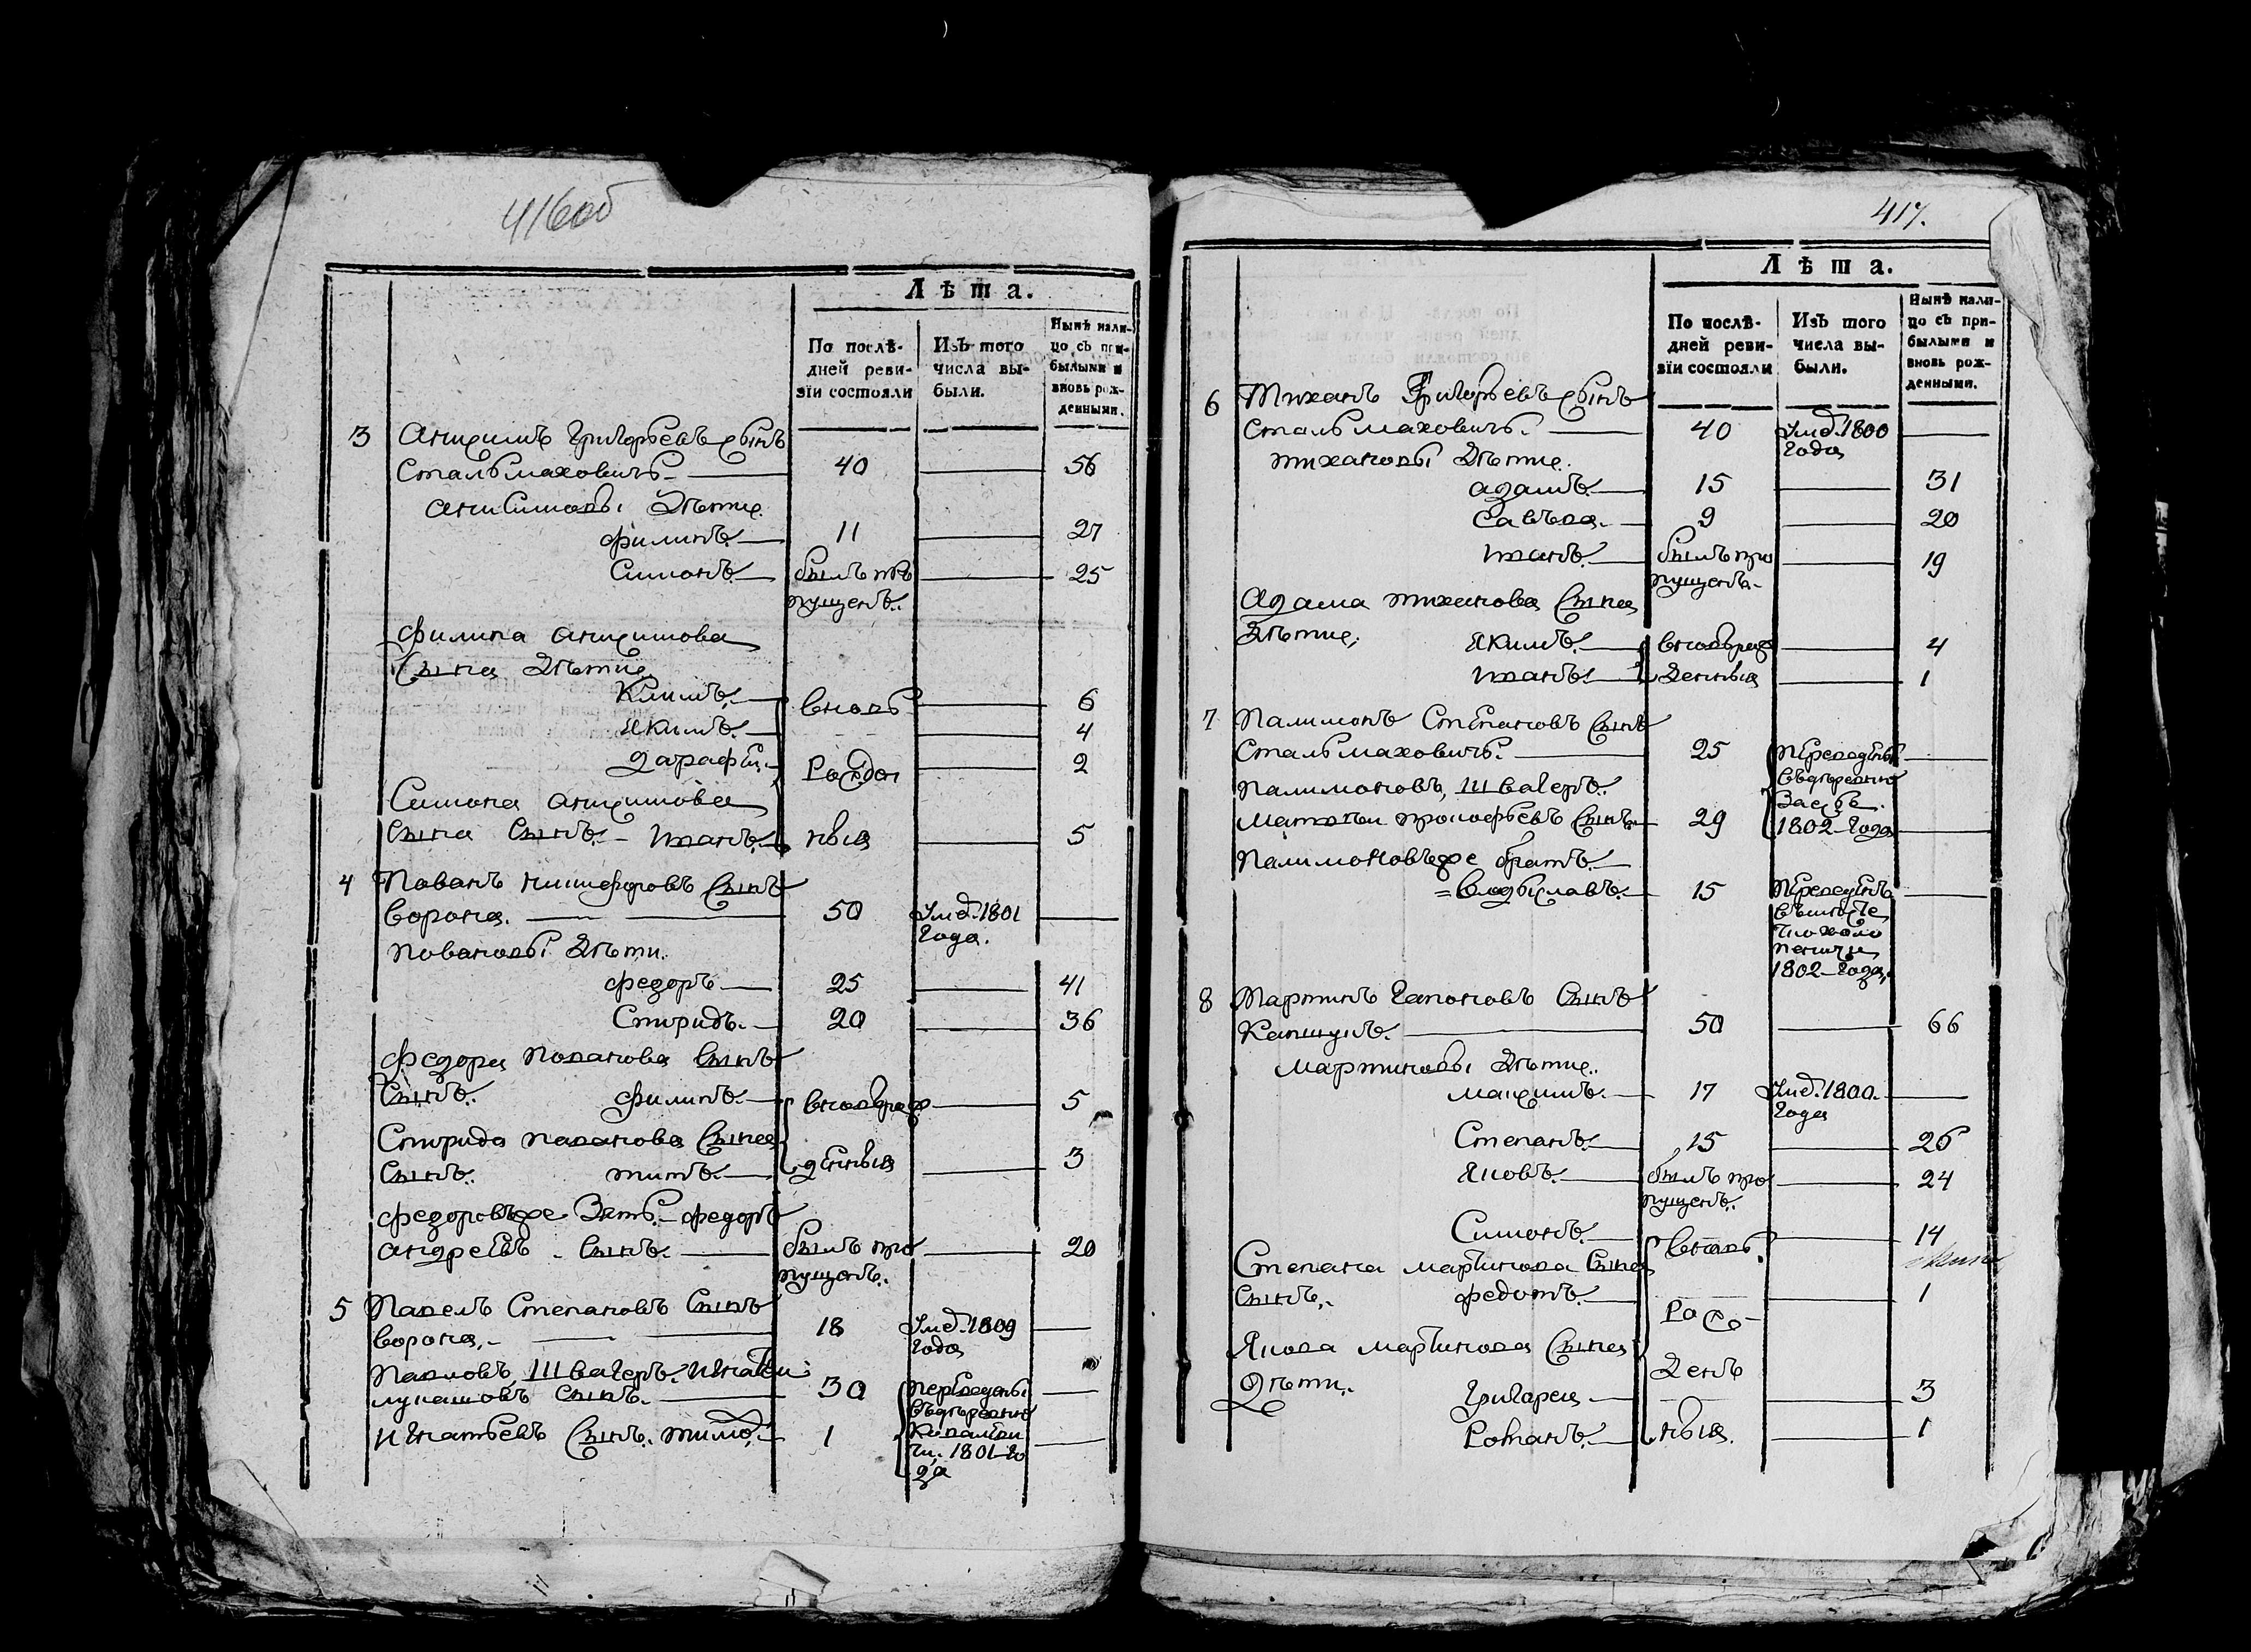 416 об
Лѣта.
По послѣ-
дней реви-
зїи состояли
Изъ того
числа вы-
были.
Нынѣ нали-
цо съ при-
былыми и
вновь рож-
денными.
3 Анисимъ Григорьевъ сынъ
Стальмаховичь. 40 56
Анисимовы дѣти.
Филипъ. 11 27
Симонъ. былъ про 25
пущенъ.
Филипа Анисимова
сына дѣти
Климъ. вновь 6
Якимъ. 4
Дарафей. рожден 2
Симона Анисимова
сына сынъ. Иванъ. ныя 5
4 Никифоровъ сынъ
Ворона. 50 Умер. 1801
года.
дѣти.
Федоръ 25 41
Спиридъ. 20 36
Федора сынъ
сынъ. Филипъ. вновьрож 5
Спирида сына
сынъ. Титъ. денныя 3
Федоровъ же зять. Федоръ
Андреевъ сынъ. былъ про 20
пущенъ.
5 Павелъ Степановъ сынъ
Ворона. 18 Умер. 1809
года
Павловъ, швагеръ. Игнатей
Лукашовъ сынъ. 30 переведены
въ деревню
Игнатьевъ сынъ. 1
1801 го
да
417.
Лѣта.
По послѣ-
дней реви-
зїи состояли
Изъ того
числа вы-
были.
Нынѣ нали-
цо съ при-
былыми и
вновь рож-
денными.
6 Тиханъ Григорьевъ сынъ
Стальмаховичь. 40 Умер. 1800
года
Тихановы дѣти.
Адамъ. 15 31
Савъва. 9 20
Иванъ. былъ про 19
пущенъ.
Адама Тиханова сына
дѣти. Якимъ. вновьрож 4
Иванъ. денныя 1
7 Палимонъ Степановъ сынъ
Стальмаховичь. 25 переведены
въ деревню
Палимоновъ, швагеръ.
Прокофьевъ сынъ. 29 1802 года
Палимоновъ же братъ.
15 переведенъ
1802 года.
8 Мартинъ Гапоновъ сынъ
Капшукъ. 50 66
Мартиновы дѣти.
Максимъ. 17 Умер. 1800.
года
Степанъ. 15 26
Яковъ. былъ про 24
пущенъ.
Симонъ. вновь 14
Степана Мартинова сына
сынъ. Федотъ. рож 1
Якова Мартинова сына денъ
дѣти. Григорей 3
Романъ. ныя. 1